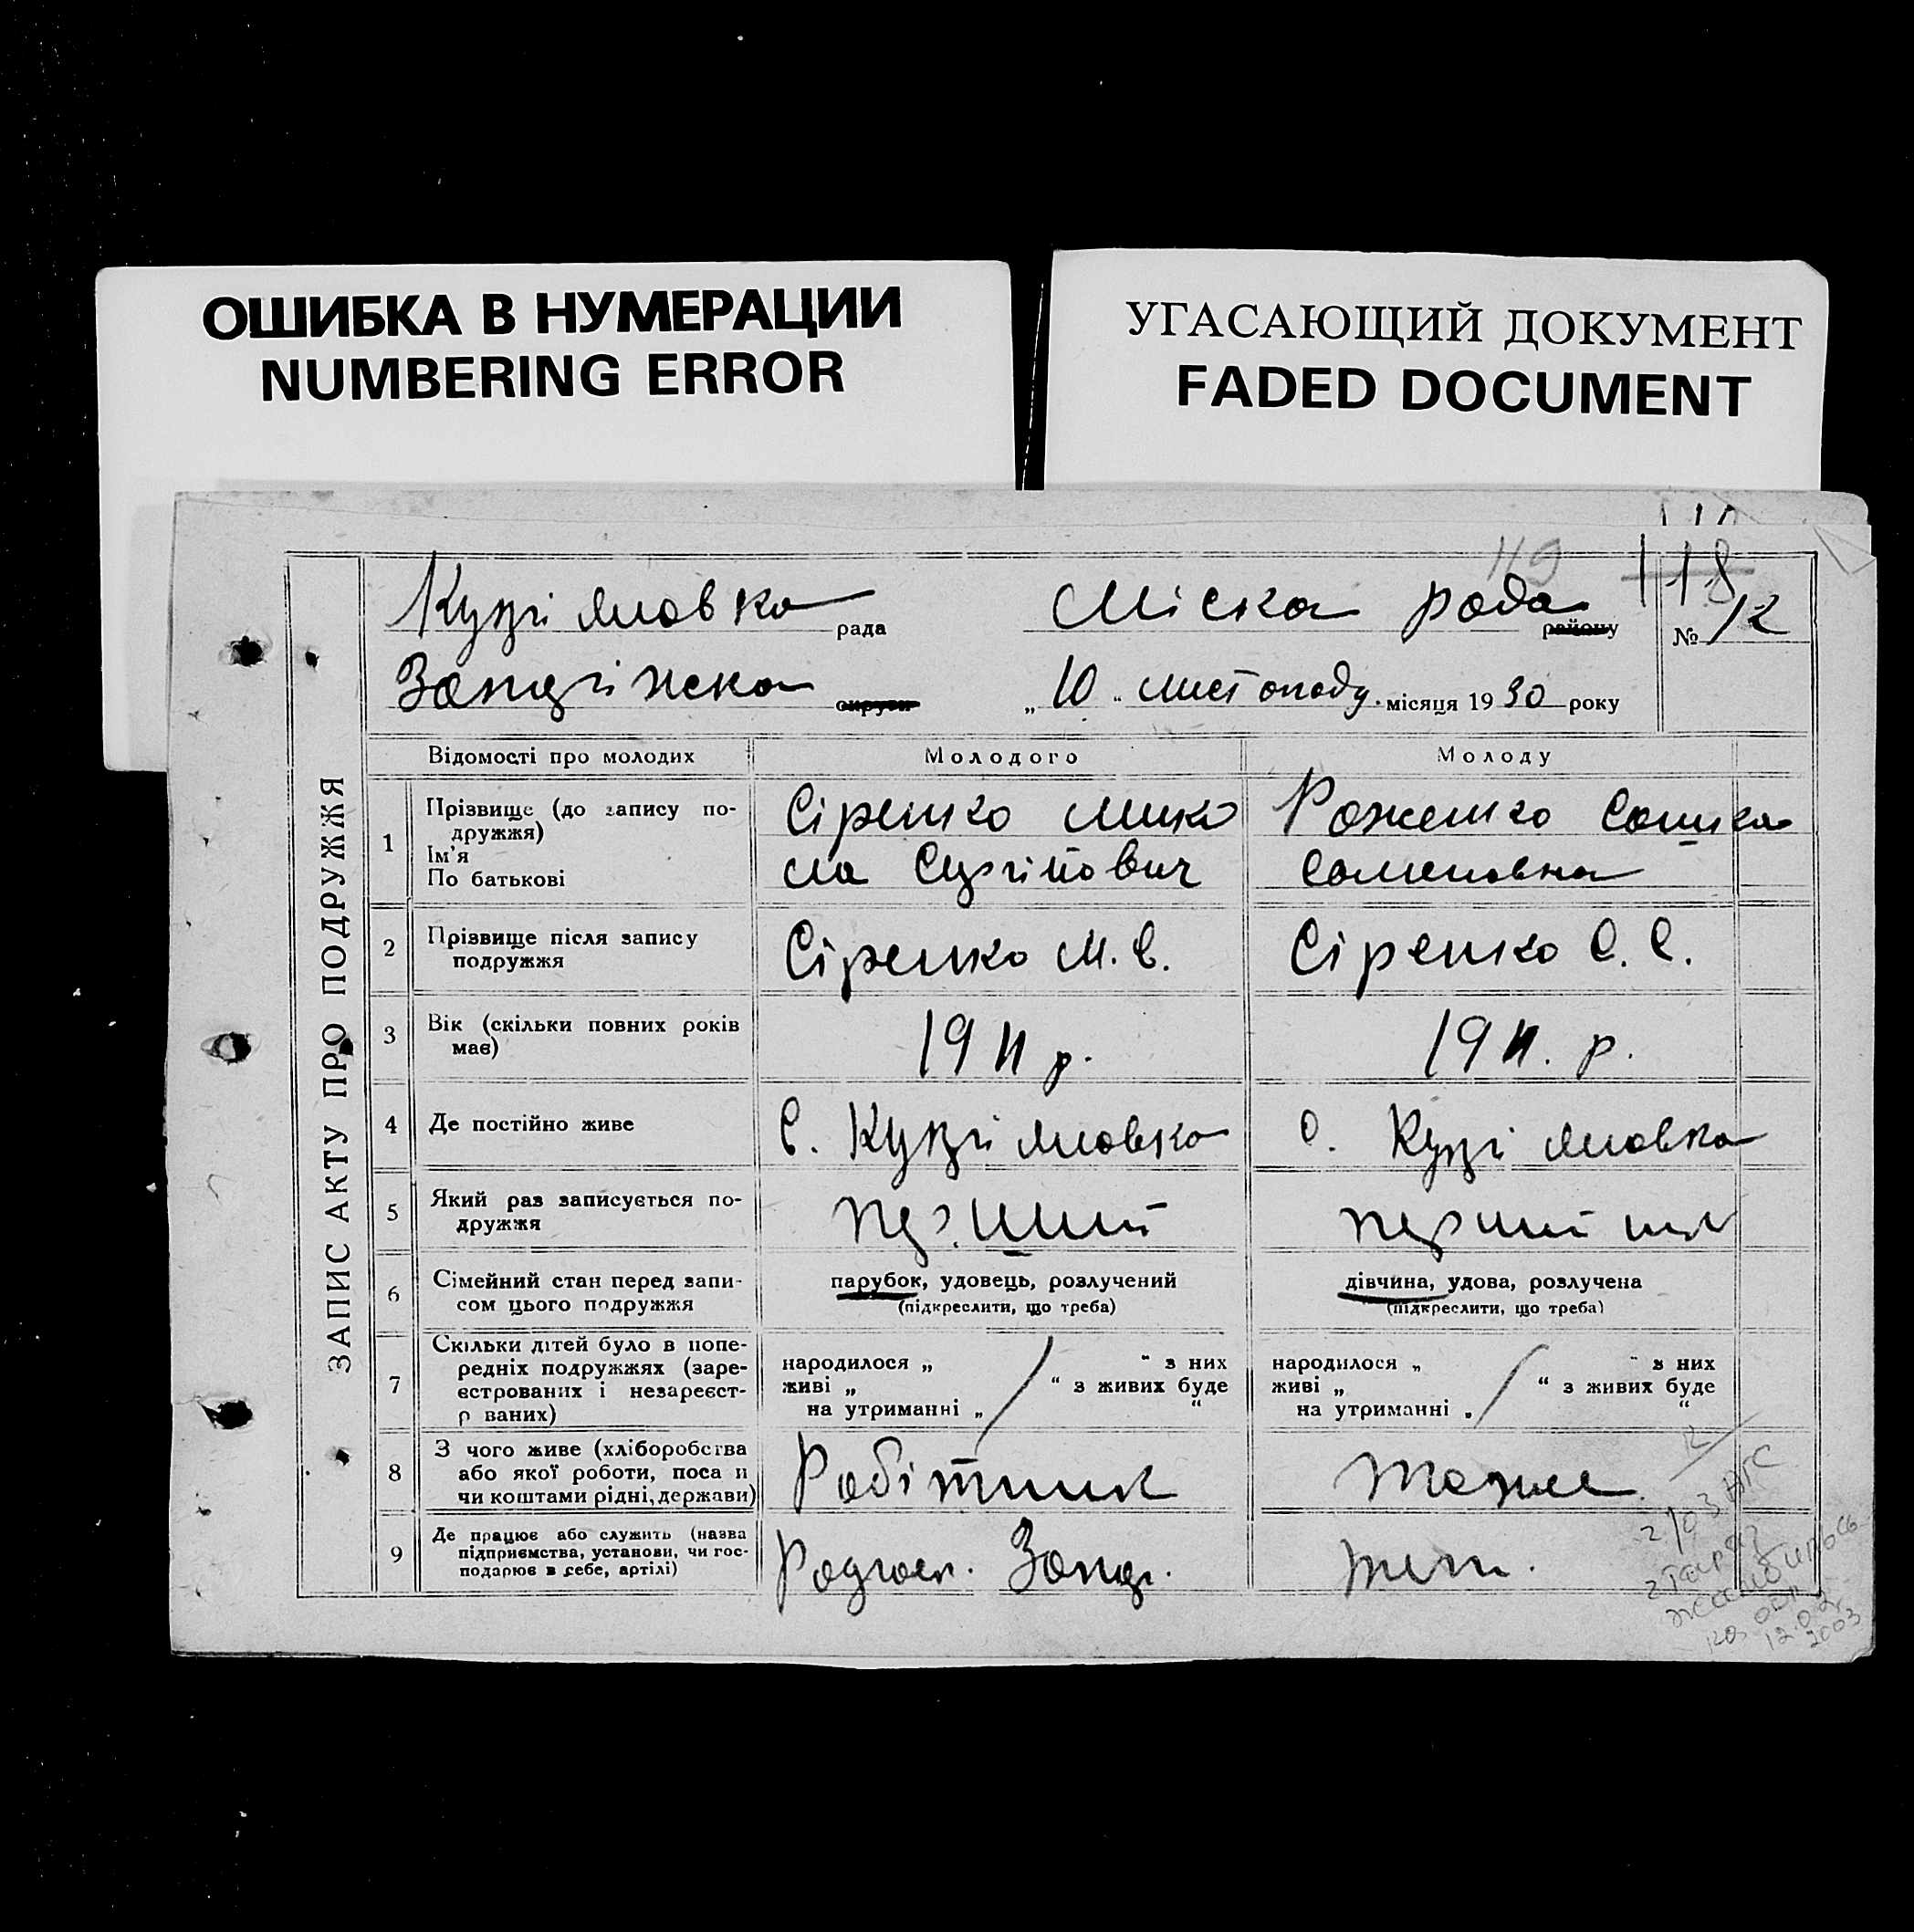 ОШИБКА В НУМЕРАЦИИ
NUMBERING ERROR
УГАСАЮЩИЙ ДОКУМЕНТ
FADED DOCUMENT
119
118
рада
Міска рада району
№ 12
округи
„ 10 “ листопаду місяця 1930 року
ЗАПИС АКТУ ПРО ПОДРУЖЖЯ
Відомості про молодих
Молодого
Молоду
1
Прізвище (до запису по-
дружжя)
Ім'я
По батькові
Сіренко Мико
ла Сергійович
Роженко Сошка
Семеновна
2
Прізвище після запису
подружжя
Сіренко М. С.
Сіренко С. С.
3
Вік (скільки повних років
має)
1911 р.
1911. р.
4
Де постійно живе
С.
С.
5
Який раз записується по-
дружжя
перший
перший
6
Сімейний стан перед запи-
сом цього подружжя
парубок, удовець, розлучений
(підкреслити, що треба)
дівчина, удова, розлучена
(підкреслити, що треба)
7
Скільки дітей було в попе-
редніх подружжях (заре-
єстрованих і незареєст-
р ваних)
народилося „ “ з них
живі „ “ з живих буде
на утриманні „ “
народилося „ “ з них
живі „ “ з живих буде
на утриманні „ “
8
З чого живе (хліборобства
або якої роботи, поса и
чи коштами рідні, держави)
Робітник
тоже
9
Де працює або служить (назва
підприємства, установи, чи гос-
подарює в себе, артілі)
Радгосп.
12.02.
2003